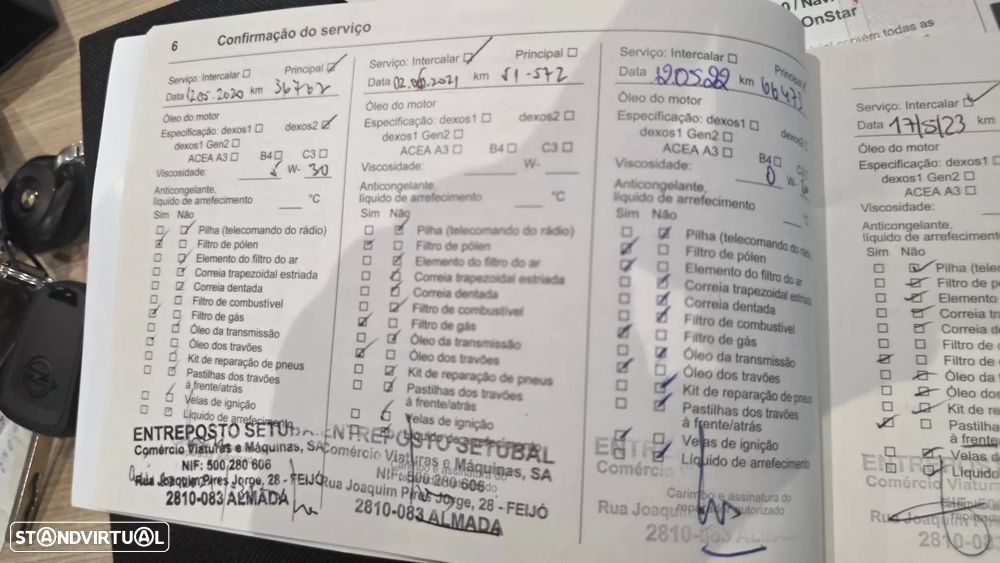 6 Confirmação do serviço
Serviço: Intercalar ☐ Principal ☑
Data 12.05.2020 km 36762
Óleo do motor
Especificação: dexos1 ☐ dexos2 ☑
dexos1 Gen2 ☐
ACEA A3 ☐ B4 ☐ C3 ☐
Viscosidade: W- 30
Anticongelante,
líquido de arrefecimento °C
Sim Não
Pilha (telecomando do rádio)
Filtro de pólen
Elemento do filtro do ar
Correia trapezoidal estriada
Correia dentada
Filtro de combustível
Filtro de gás
Óleo da transmissão
Óleo dos travões
Kit de reparação de pneus
Pastilhas dos travões
à frente/atrás
Velas de ignição
Líquido de arrefecimento
ENTREPOSTO SETUBAL
Comércio Viaturas e Máquinas, SA
NIF: 500 280 606
Rua Joaquim Pires Jorge, 28 - FEIJÓ
2810-083 ALMADA
Serviço: Intercalar ☑ Principal ☐
Data 02.06.2021 km 51-572
Óleo do motor
Especificação: dexos1 ☐ dexos2 ☐
dexos1 Gen2 ☐
ACEA A3 ☐ B4 ☐ C3 ☐
Viscosidade: W-
Anticongelante,
líquido de arrefecimento °C
Sim Não
Pilha (telecomando do rádio)
Filtro de pólen
Elemento do filtro do ar
Correia trapezoidal estriada
Correia dentada
Filtro de combustível
Filtro de gás
Óleo da transmissão
Óleo dos travões
Kit de reparação de pneus
Pastilhas dos travões
à frente/atrás
Velas de ignição
ENTREPOSTO SETUBAL
Comércio Viaturas e Máquinas, SA
NIF: 500 280 606
Carimbo e assinatura do
Rua Joaquim Pires Jorge, 28 - FEIJÓ
2810-083 ALMADA
Serviço: Intercalar ☐ Principal
Data 120522 km 66473
Óleo do motor
Especificação: dexos1 ☐ dexos2
dexos1 Gen2 ☐
ACEA A3 ☐ B4 ☐ C3
Viscosidade: 0 W-
Anticongelante,
líquido de arrefecimento °C
Sim Não
Pilha (telecomando do rádio)
Filtro de pólen
Elemento do filtro do ar
Correia trapezoidal estriada
Correia dentada
Filtro de combustível
Filtro de gás
Óleo da transmissão
Óleo dos travões
Kit de reparação de pneus
Pastilhas dos travões
à frente/atrás
Velas de ignição
Líquido de arrefecimento
Comércio
Carimbo e assinatura do
Rua Joaquim autorizado
2810-083
OnStar
contém todas as
Serviço: Intercalar ☑
Data 17/5/23 km
Óleo do motor
Especificação: dexos1 ☐
dexos1 Gen2 ☐
ACEA A3 ☐
Viscosidade:
Anticongelante,
líquido de arrefecimento
Sim Não
Pilha (tele
Filtro de p
Elemento
Correia tra
Correia de
Filtro de
Filtro de
Óleo da
Óleo do
Kit de re
Pastilha
à frente
Velas
Líquido
Comércio Viatur
Rua Joaquim
2810-08
STANDVIRTUAL